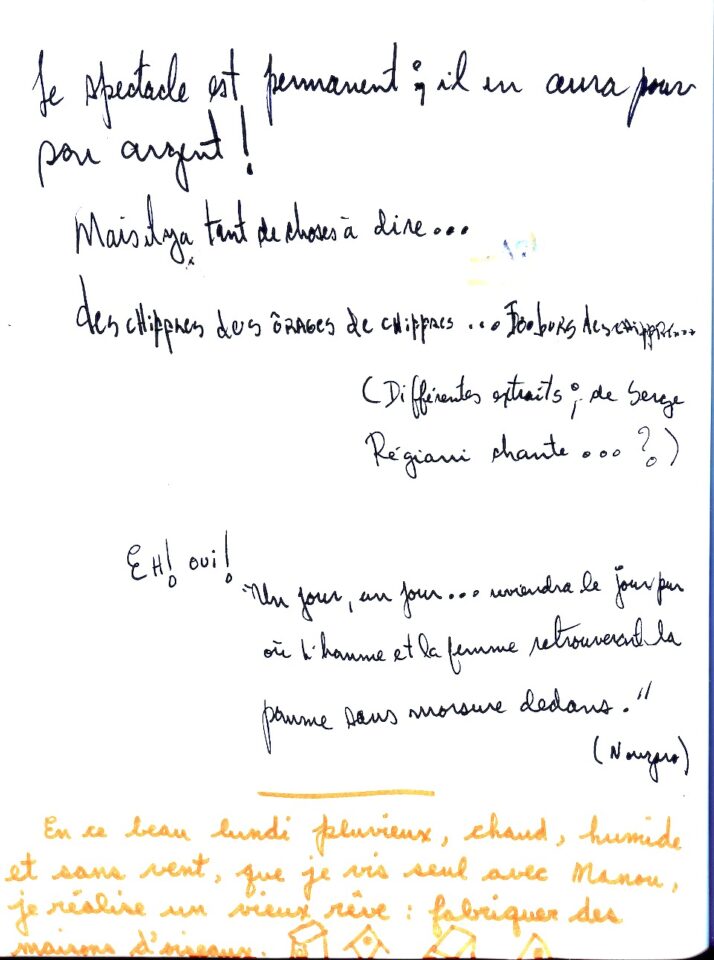 Le spectacle est permanent ; il en aura pour
son argent !
Mais il y a tant de choses à dire...
des chiffres des ôrages de chiffres ... des chiffres...
(Différentes extraits ; de Serge
Régiani chante ... ?)
EH! oui!
"Un jour, un jour... reviendra le jour pur
où l'homme et la femme retrouveront la
pomme sans morsure dedans."
(Nougaro)
En ce beau lundi pluvieux, chaud, humide
et sans vent, que je vis seul avec Manou,
je réalise un vieux rêve : fabriquer des
maisons d'oiseaux.